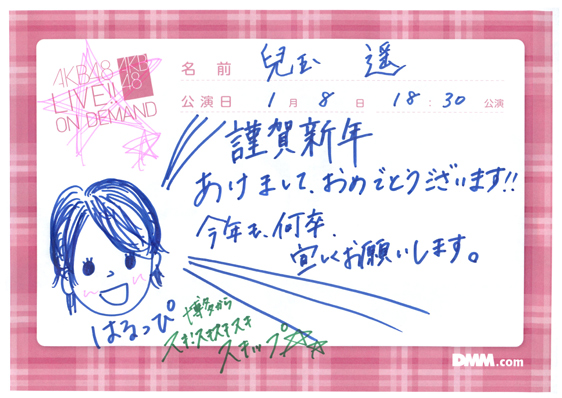 AKB48
LIVE!!
ON DEMAND
AKB
48
名前 兒玉 遥
公演日 1月8日 18:30公演
謹賀新年
あけまして、おめでとうございます!!
今年も、何卒、
宜しくお願いします。
はるっぴ
博多から
スキ!スキスキスキ
スキップ☆☆
DMM.com